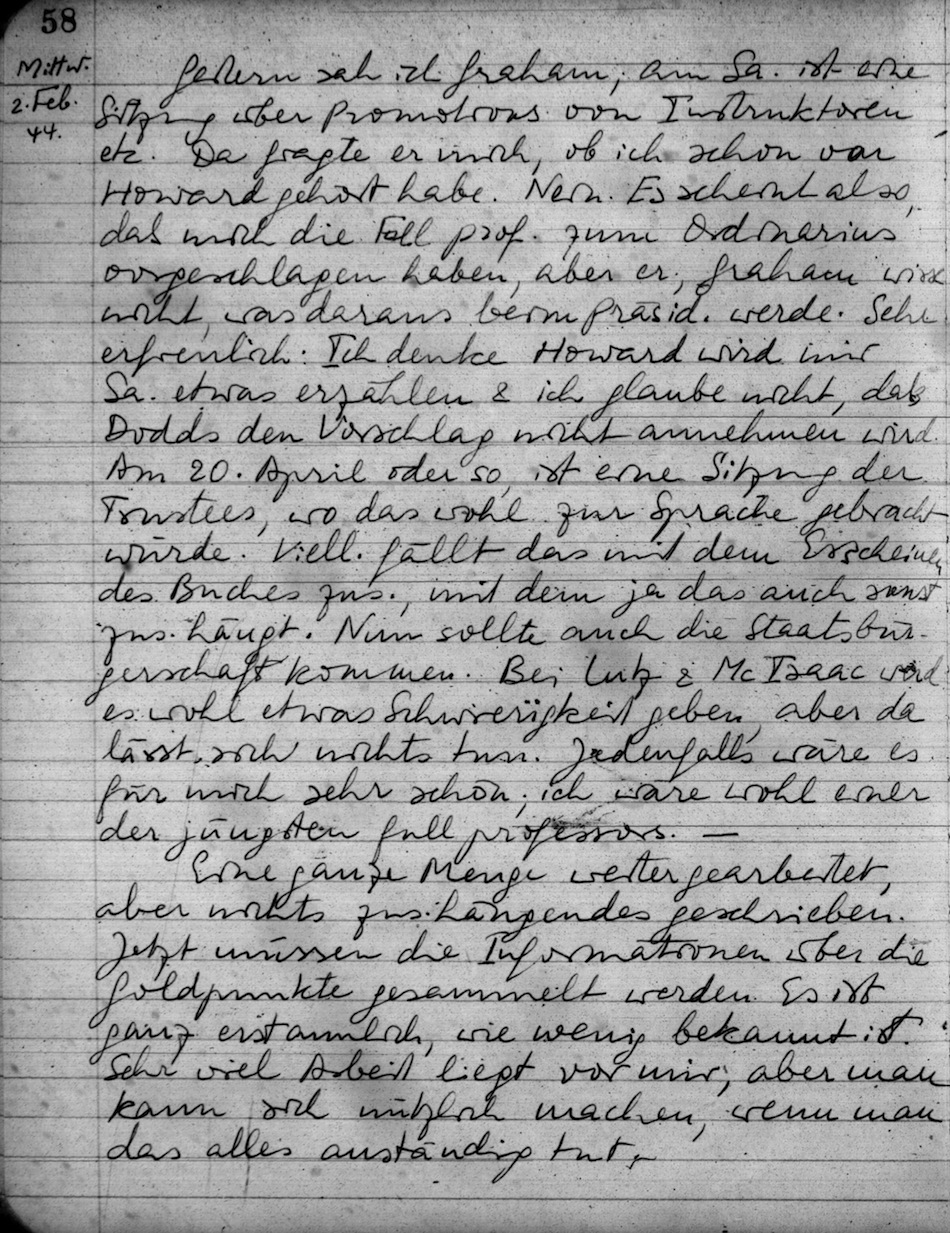 58
Mittw.
2. Feb.
44.
Gestern sah ich Graham; am Sa. ist eine
Sitzung über Promotions von Instruktoren,
etc. Da fragte er mich, ob ich schon von
Howard gehört habe. Nein. Es scheint also,
daß mich die Full prof. zum Ordinarius
vorgeschlagen haben, aber er, Graham wisse
nicht, was daraus beim Präsid. werde. Sehr
erfreulich: Ich denke Howard wird mir
Sa. etwas erzählen & ich glaube nicht, daß
Dodds den Vorschlag nicht annehmen wird.
Am 20. April oder so, ist eine Sitzung der
Trustees, wo das wohl zur Sprache gebracht
würde. Viell. fällt das mit dem Erscheinen
des Buches zus., mit dem ja das auch sonst
zus. hängt. Nun sollte auch die Staatsbür-
gerschaft kommen. Bei Lutz & Mc Isaac wird
es wohl etwas Schwierigkeit geben, aber da
lässt sich nichts tun. Jedenfalls wäre es
für mich sehr schön; ich wäre wohl einer
der jüngsten full professors. —
Eine ganze Menge weitergearbeitet,
aber nichts zus.hängendes geschrieben.
Jetzt müssen die Informationen über die
Goldpunkte gesammelt werden. Es ist
ganz erstaunlich, wie wenig bekannt ist.
Sehr viel Arbeit liegt vor mir; aber man
kann sich nützlich machen, wenn man
das alles anständig tut.